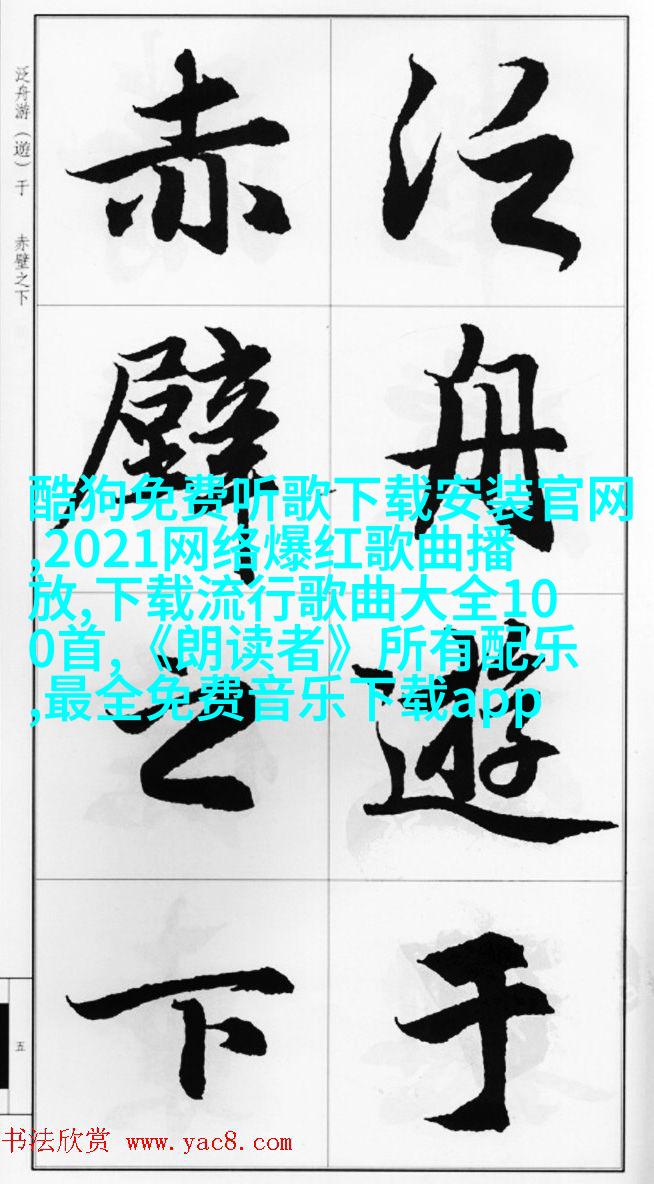 泛舟遊于
赤壁之下
泛舟游（遊）于 赤壁之下
酷狗免费听歌下载安装官网
,2021网络爆红歌曲播
放,下载流行歌曲大全10
0首,《朗读者》所有配乐
,最全免费音乐下载app
五
书法欣赏 www.yac8.com